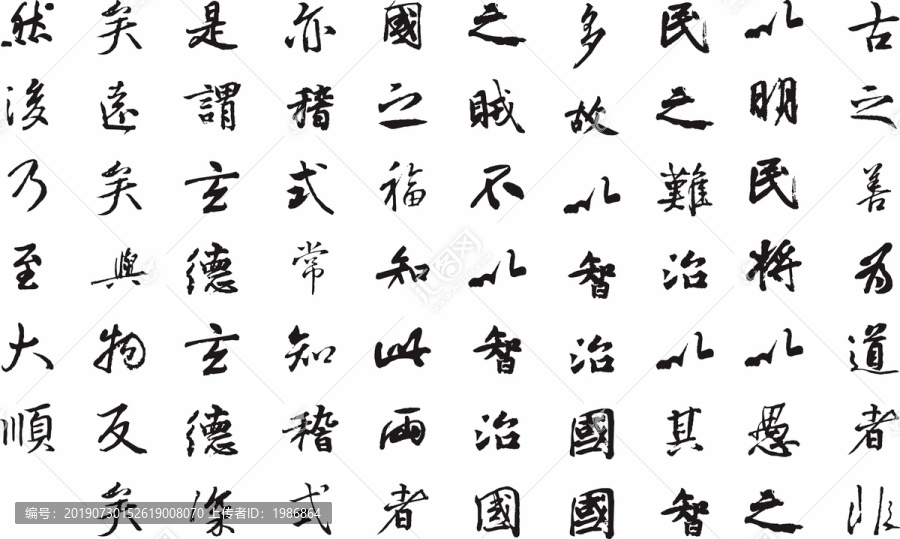 古之善为道者非
以明民将以愚之
民之難治以其智
多故以智治國國
之贼不以智治國
國之福知此两者
亦稽式常知稽式
是謂玄德玄德深
矣遠矣與物反矣
然後乃至大順
编号：20190730152619008070 上传者ID：1986864